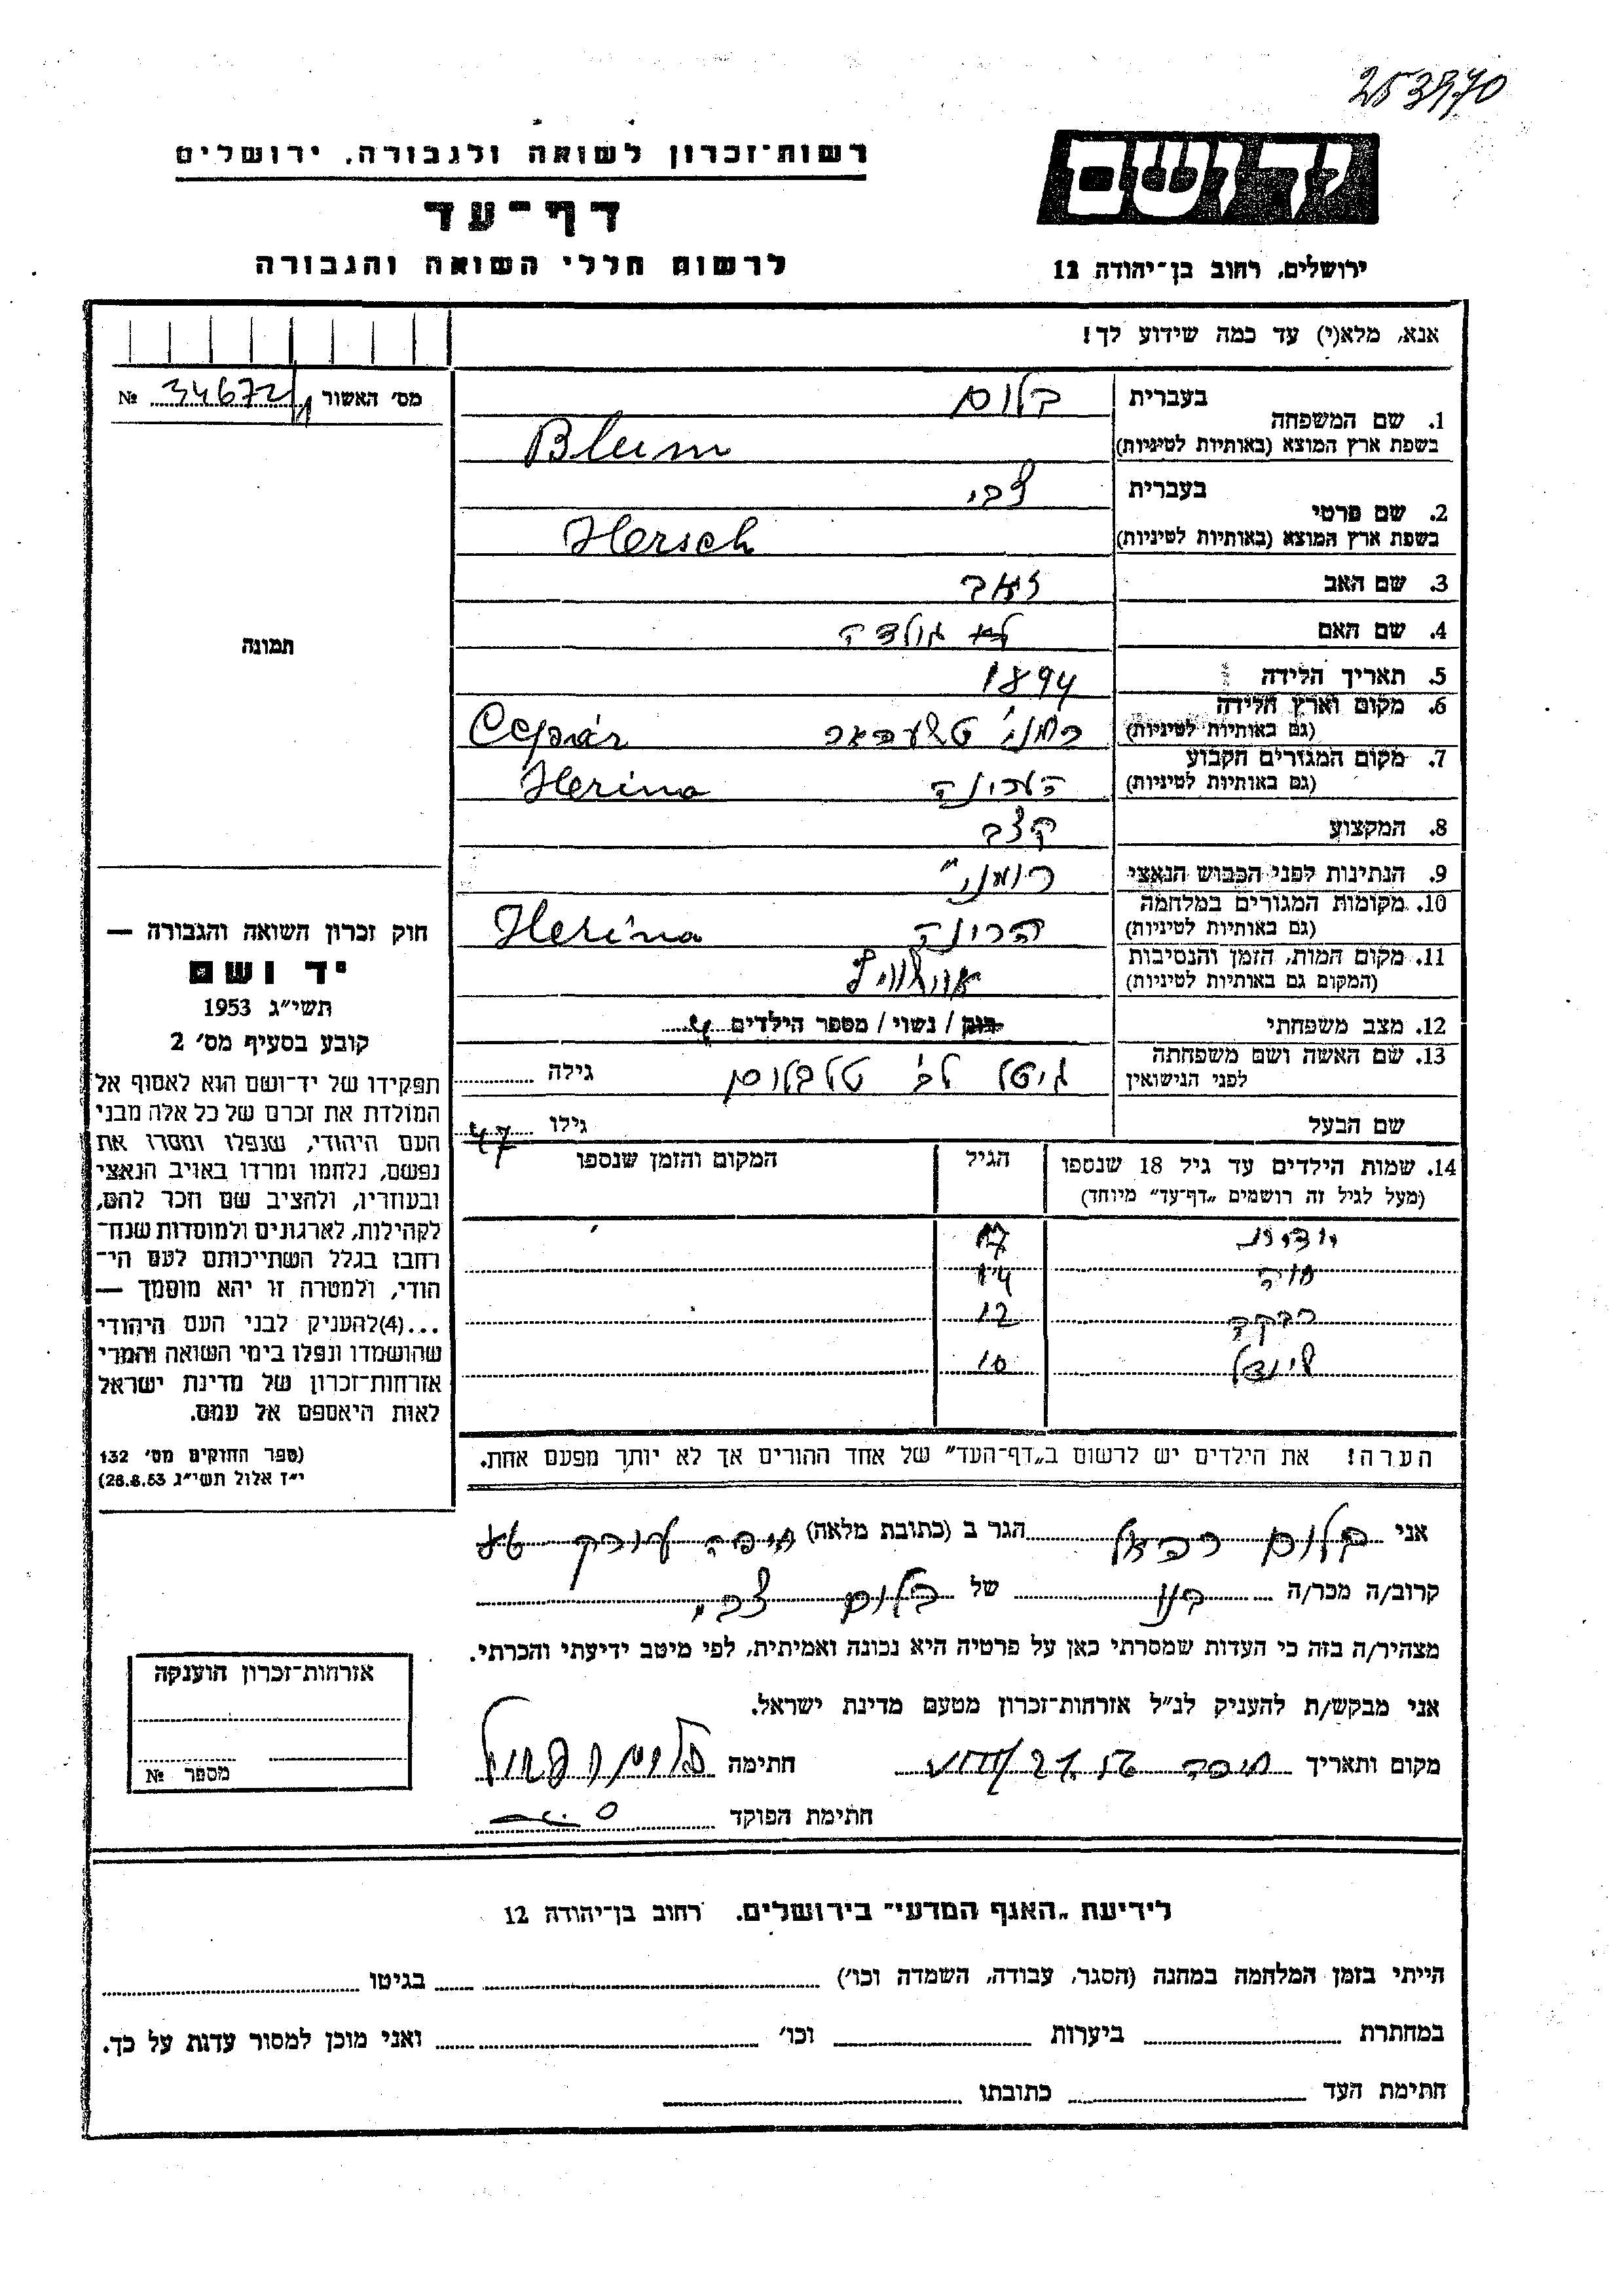 253970
רשות־זכרון לשואה ולגבורה, ירושלים
יד ושם
דף־עד
לרשום חללי השואה והגבורה
ירושלים, רחוב בן־יהודה 12
אנא, מלא(י) עד כמה שידוע לך!
מס' האשור 34672/1 №
1. שם המשפחה
בעברית בלום
בשפת ארץ המוצא (באותיות לטיניות) Blum
2. שם פרטי
בעברית צבי
בשפת ארץ המוצא (באותיות לטיניות) Hersch
3. שם האב זאב
4. שם האם לא גולדה
5. תאריך הלידה 1894
6. מקום וארץ הלידה
(גם באותיות לטיניות) Cepár
7. מקום המגורים הקבוע
(גם באותיות לטיניות) הרינה Herina
8. המקצוע קצב
9. הנתינות לפני הכבוש הנאצי
10. מקומות המגורים במלחמה
(גם באותיות לטיניות) הרינה Herina
11. מקום המות, הזמן והנסיבות
(המקום גם באותיות לטיניות) אושוויץ
12. מצב משפחתי רוק / נשוי / מספר הילדים 4
13. שם האשה ושם משפחתה
לפני הנישואין גיטל גילה
שם הבעל גילו 47
14. שמות הילדים עד גיל 18 שנספו הגיל המקום והזמן שנספו
(מעל לגיל זה רושמים „דף־עד" מיוחד)
יהודית 17
חיה 14
רבקה 12
שינדל 10
הערה! את הילדים יש לרשום ב„דף־העד" של אחד ההורים אך לא יותר מפעם אחת.
תמונה
חוק זכרון השואה והגבורה —
יד ושם
תשי"ג 1953
קובע בסעיף מס' 2
תפקידו של יד־ושם הוא לאסוף אל
המולדת את זכרם של כל אלה מבני
העם היהודי, שנפלו ומסרו את
נפשם, נלחמו ומרדו באויב הנאצי
ובעוזריו, ולהציב שם וזכר להם,
לקהילות, לארגונים ולמוסדות שנח־
רבו בגלל השתייכותם לעם הי־
הודי, ולמטרה זו יהא מוסמך —
...(4)להעניק לבני העם היהודי
שהושמדו ונפלו בימי השואה והמרי
אזרחות־זכרון של מדינת ישראל
לאות היאספם אל עמם.
(ספר החוקים מס' 132
י"ז אלול תשי"ג 28.8.53)
אני בלום רפאל הגר ב (כתובת מלאה) חיפה
קרוב/ה מכר/ה בנו של בלום צבי
מצהיר/ה בזה כי העדות שמסרתי כאן על פרטיה היא נכונה ואמיתית, לפי מיטב ידיעתי והכרתי.
אני מבקש/ת להעניק לנ"ל אזרחות־זכרון מטעם מדינת ישראל.
מקום ותאריך חיפה חתימה בלום רפאל
חתימת הפוקד
אזרחות־זכרון הוענקה
מספר №
לידיעת „האגף המדעי" בירושלים, רחוב בן־יהודה 12
הייתי בזמן המלחמה במחנה (הסגר, עבודה, השמדה וכו') בגיטו
במחתרת ביערות וכו' ואני מוכן למסור עדות על כך.
חתימת העד כתובתו